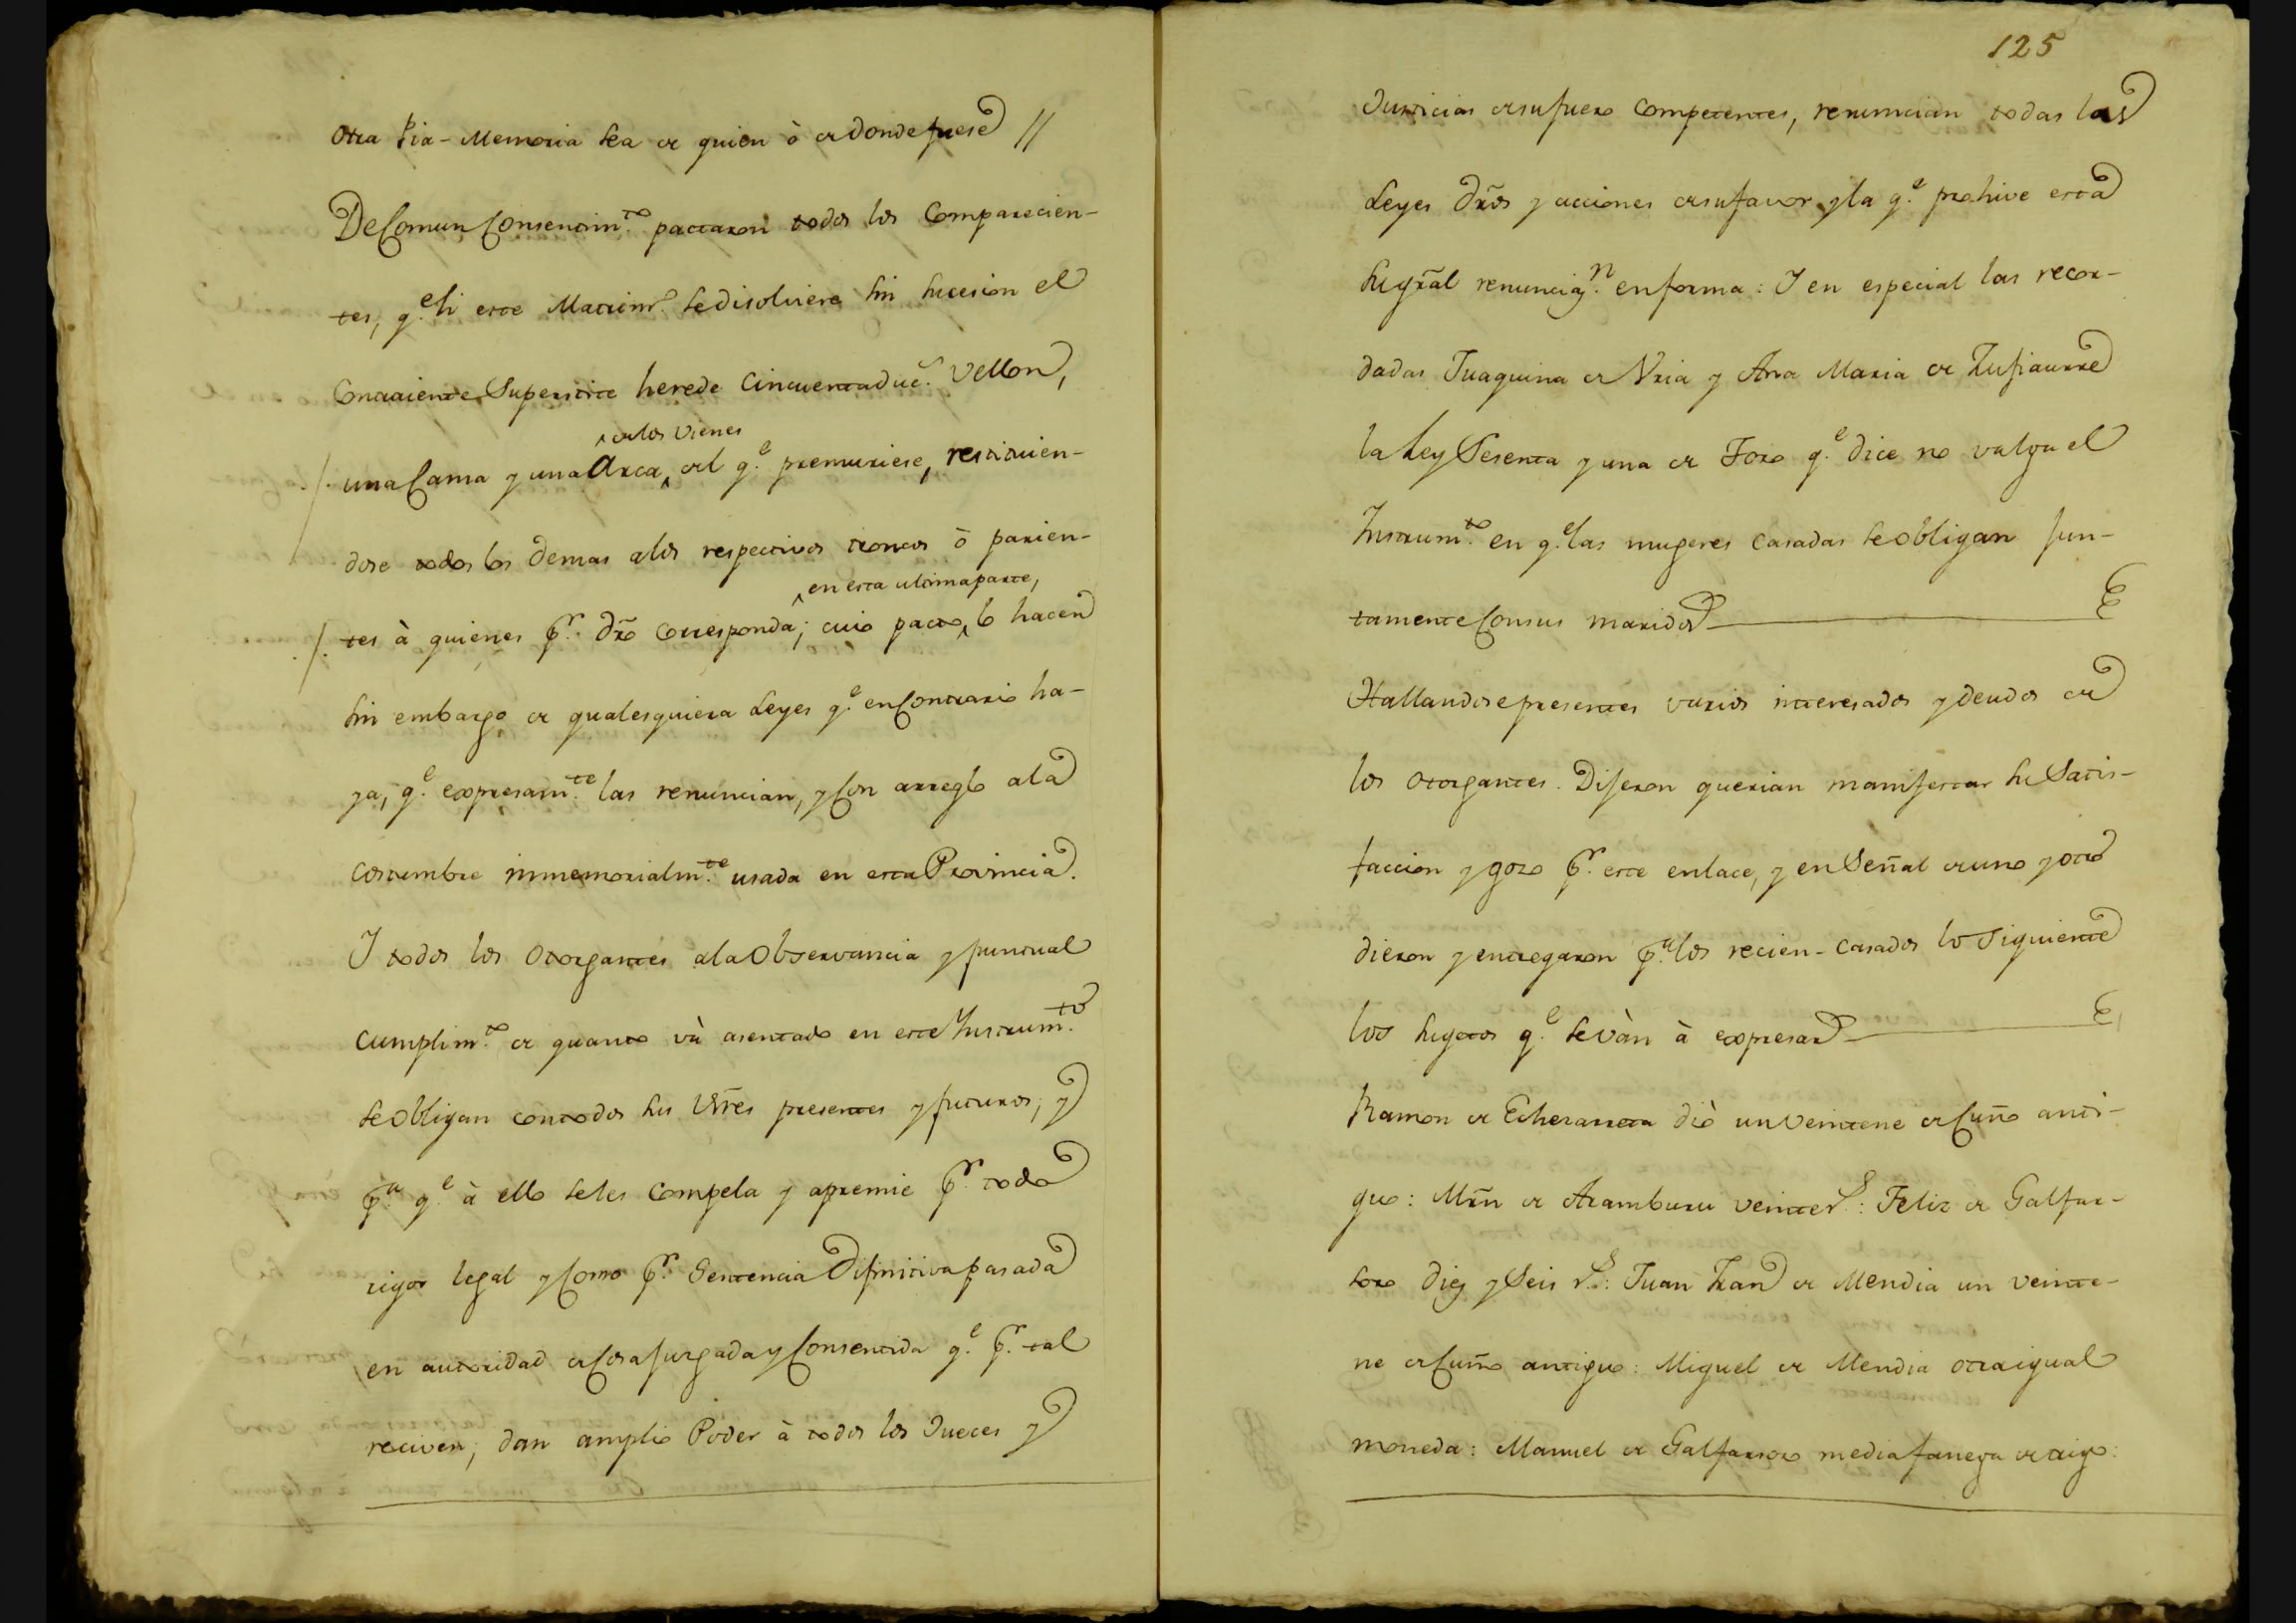 otra Pia-Memoria sea de quien ò de donde fuese //
De Comun Consentim.to pactaron todos los Comparecien-
tes, q.e si este Matrim.o se disolviere sin sucesion el
Contraiente Superstite herede Cincuenta duc.s vellon,
de los vienes
una Cama y una Arca, del q.e premuriese, restituien-
dose todos los demas a los respectivos troncos ò parien-
en esta ultima parte,
tes à quienes p.r dro corresponda; cuio pacto, lo hacen
sin embargo de qualesquiera Leyes q.e en Contrario ha-
ya, q.e expresam.te las renuncian, y Con arreglo a la
costumbre inmemorialm.te usada en esta Provincia.
I todos los otorgantes a la Observancia y puntual
cumplim.to de quanto và asentado en este Instrum.to
se obligan con todos sus Vñes presentes y futuros; y
p.a q.e à ello se les compela y apremie p.r todo
rigor legal y Como p.r Sentencia Difinitiva pasada
en autoridad de Cosa Jurgada y Consentida q.e p.r tal
reciven; dan amplio Poder à todos los Jueces y
125
Justicias de su fuero Competentes, renuncian todas las
Leyes drõs y acciones de su favor y la q.e prohive esta
su gral renunciaz.n en forma: I en especial las recor-
dadas Juaquina de Vria y Ana Maria de Zufiaurre
la Ley Sesenta y una de Foro q.e dice no valga el
Instrum.to en q.e las mugeres casadas se obligan jun-
tamente Con sus maridos
Hallandose presentes varios interesados y deudos de
los otorgantes. Dijeron querian manifestar su Satis-
faccion y gozo p.r este enlace, y en Señal de uno y otro
dieron y entregaron p.a los recien-casados lo Siguiente
los sugetos q.e se vàn à expresar
Ramon de Echezarreta diò un veinteno de Cuño anti-
guo: Mrñ de Aramburu veinte r.s: Felix de Galfar-
soro diez y Seis r.s: Juan Fran.co de Mendia un veinte-
no de Cuño antiguo: Miguel de Mendia otra igual
moneda: Manuel de Galfarsoro media fanega de trigo: